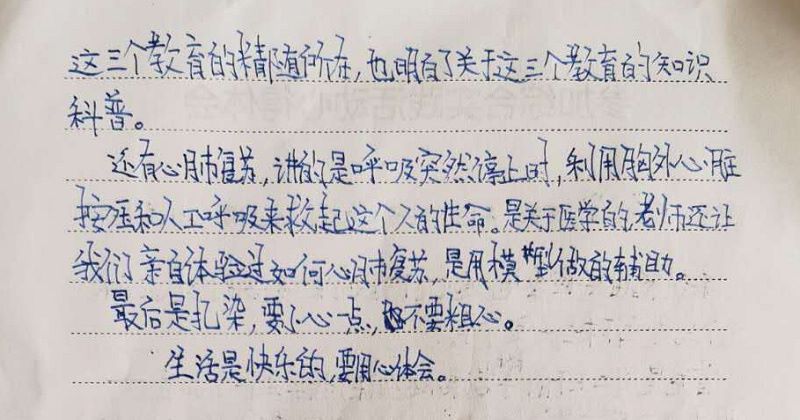 这三个教育的精随所在,也明白了关于这三个教育的知识
科普。
还有心肺复苏,讲的是呼吸突然停止时,利用胸外心脏
按压和人工呼吸来救起这个人的生命。是关于医学的老师还让
我们亲自体验过如何心肺复苏,是用模型做的辅助。
最后是扎染,要小心一点,不要粗心。
生活是快乐的,要用心体会。